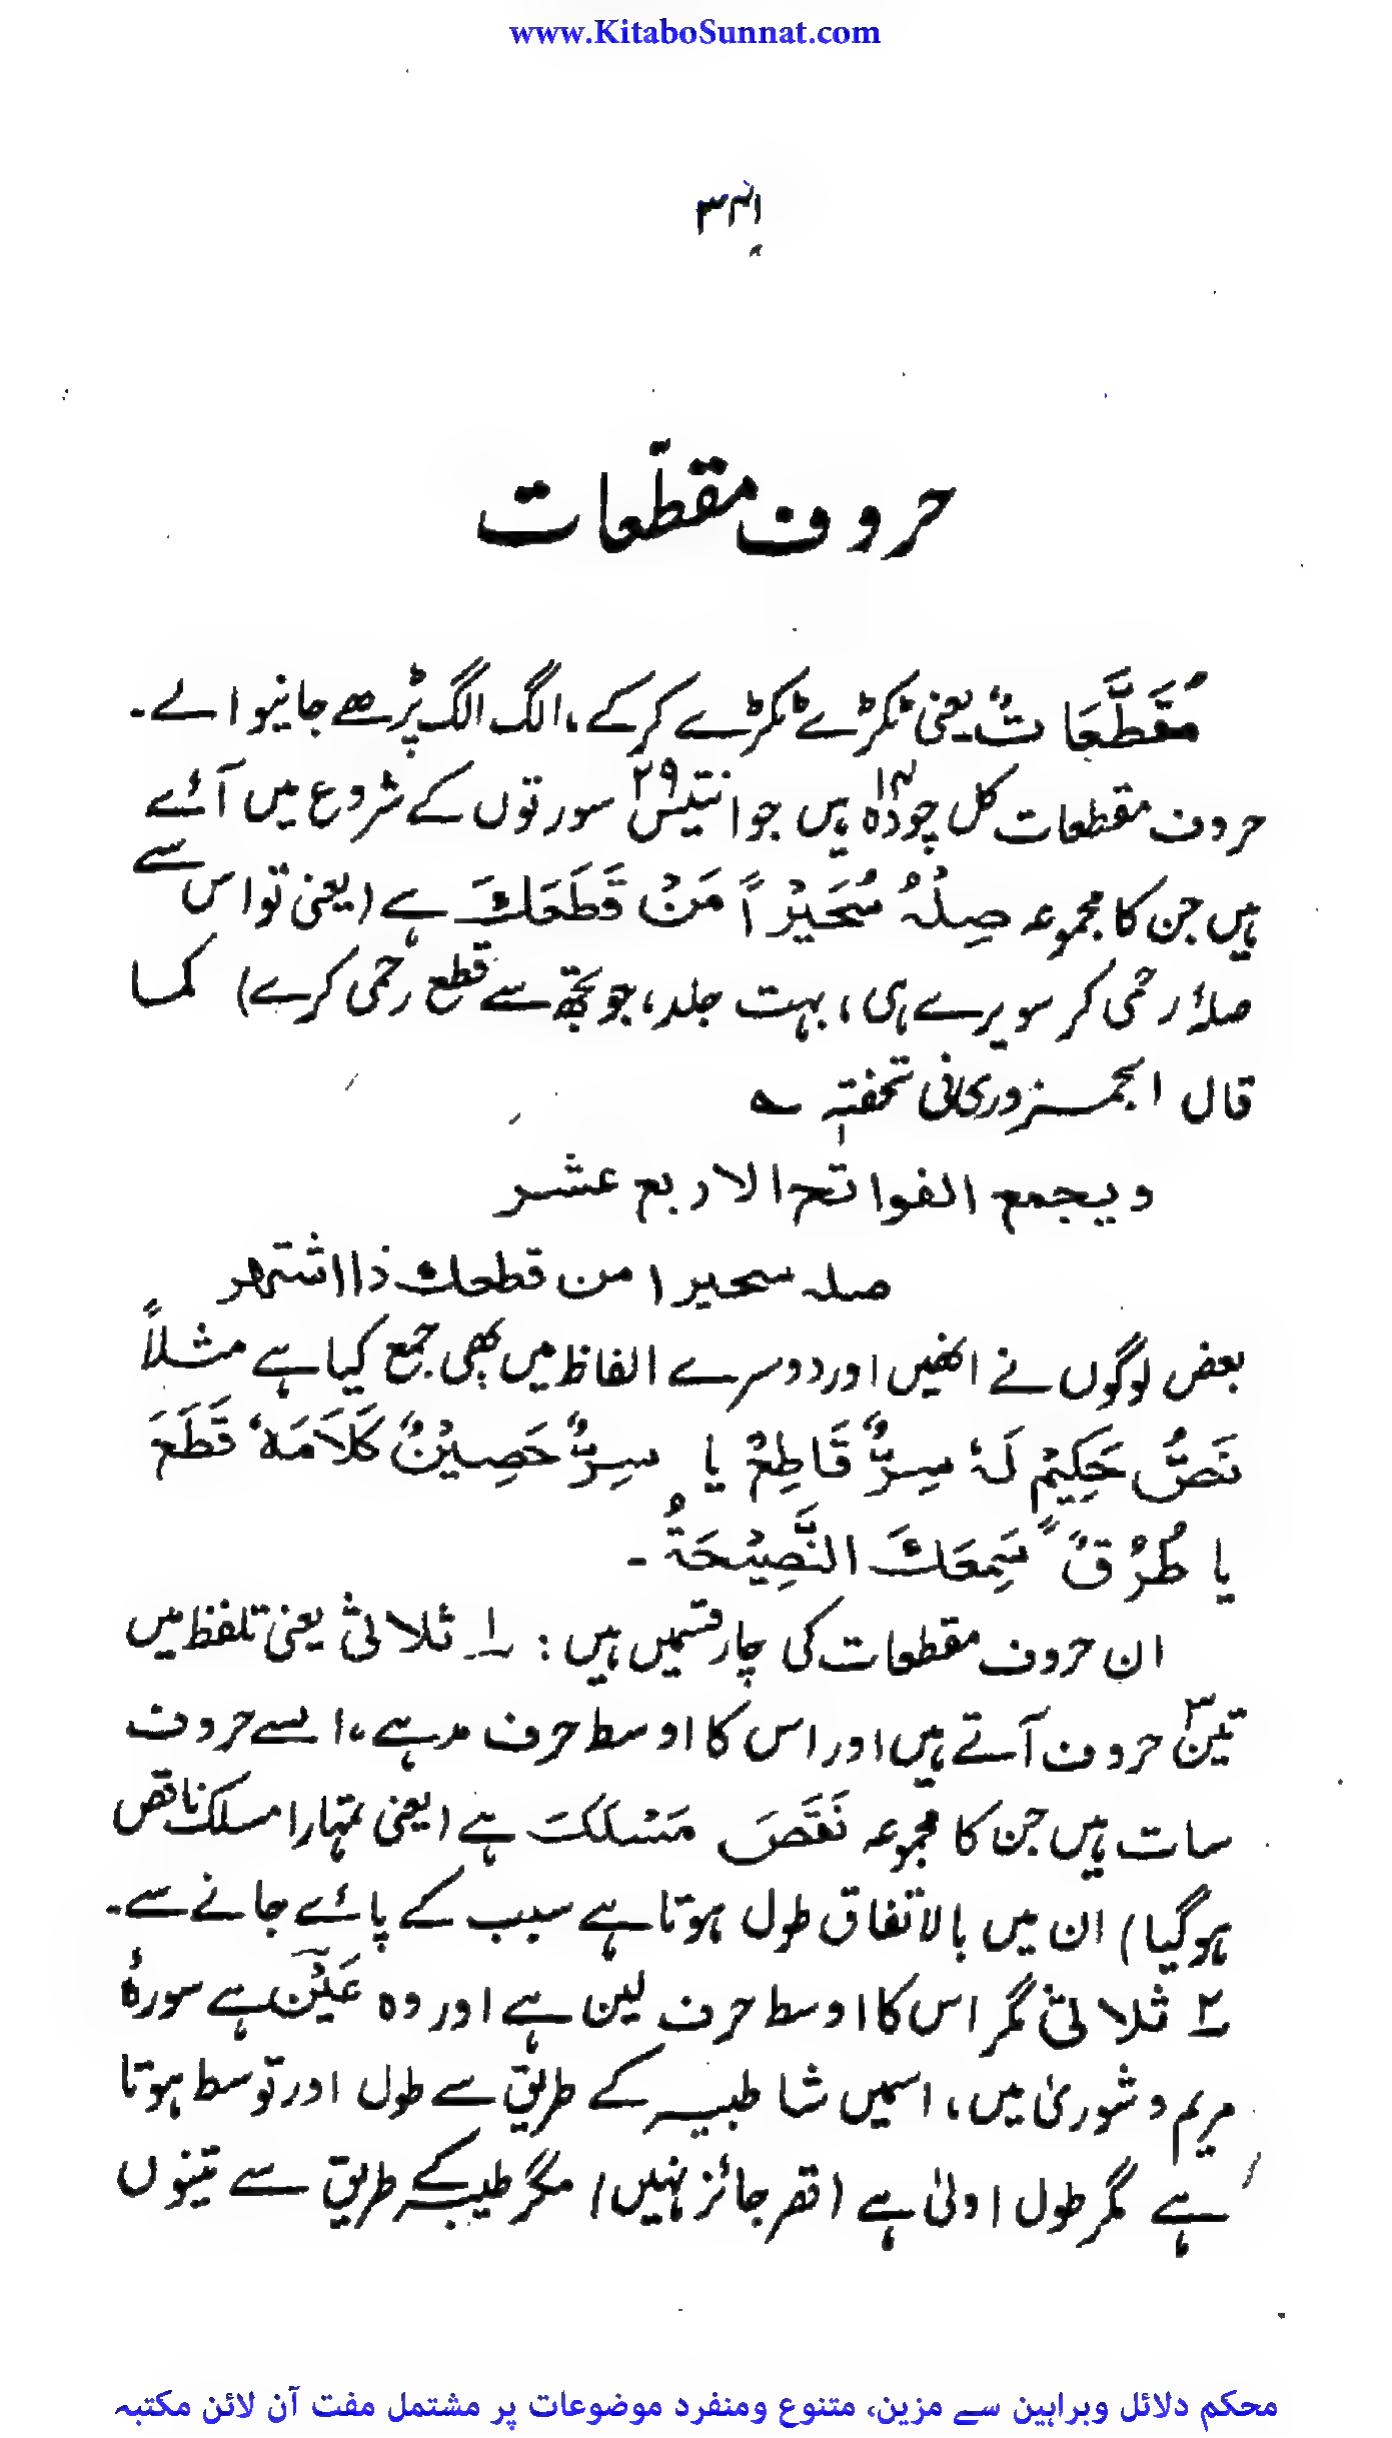 www.KitaboSunnat.com
حروف مقطّعات
مُقَطَّعَاتٌ یعنی ٹکڑے ٹکڑے کرکے، الگ الگ پڑھے جانیوالے۔
حروف مقطعات کل چودہ۱۴ ہیں جو انتیس۲۹ سورتوں کے شروع میں آئے
ہیں جن کا مجموعہ صِلْہُ سُحَیْرًا مَنْ قَطَعَكَ ہے (یعنی تو اس سے
صلۂ رحمی کر سویرے ہی، بہت جلد، جو تجھ سے قطع رحمی کرے) کما
قال الجمزوری فی تحفتہٖ ؎
ویجمع الفواتح الاربع عشر
صلہ سحیرا من قطعك ذا اشتھر
بعض لوگوں نے انھیں اور دوسرے الفاظ میں بھی جمع کیا ہے مثلاً
نَصٌّ حَكِیْمٌ لَہٗ سِرٌّ قَاطِعٌ یا سِرٌّ حَصِیْنٌ كَلَامَہٗ قَطَعَ
یا طُرُقً سَمِعَكَ النَّصِیْحَۃُ ۔
ان حروف مقطعات کی چار قسمیں ہیں : ۱؎ ثلاثی یعنی تلفظ میں
تین۳ حروف آتے ہیں اور اس کا اوسط حرف مد ہے، ایسے حروف
سات ہیں جن کا مجموعہ نَقَصَ مَسْلَكَ ہے (یعنی تمہارا مسلک ناقص
ہوگیا) ان میں بالاتفاق طول ہوتا ہے سبب کے پائے جانے سے۔
۲؎ ثلاثی مگر اس کا اوسط حرف لین ہے اور وہ عَیْن ہے سورۂ
مریم و شوریٰ میں، اسمیں شاطبیہ کے طریق سے طول اور توسط ہوتا
ہے مگر طول اولیٰ ہے (قصر جائز نہیں) مگر طیبہ کے طریق سے تینوں
محکم دلائل وبراہین سے مزین، متنوع ومنفرد موضوعات پر مشتمل مفت آن لائن مکتبہ